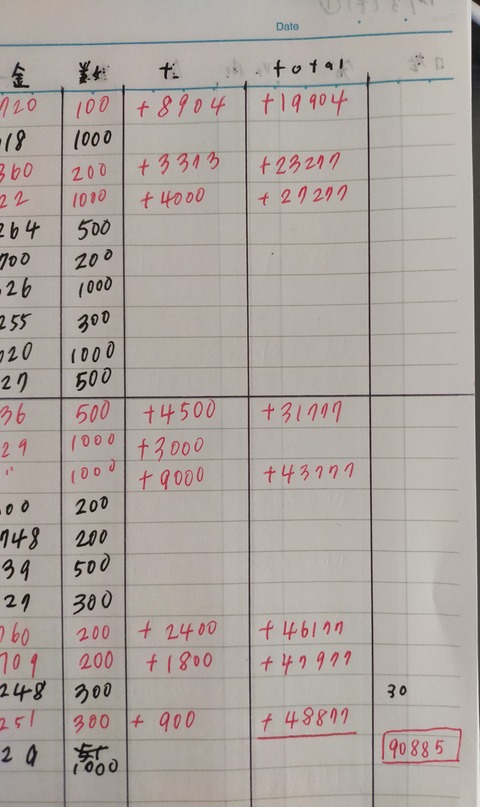 Date
金 ± total
720 100 +8904 +19904
18 1000
360 200 +3373 +23277
22 1000 +4000 +27277
264 500
700 200
26 1000
255 300
020 1000
27 500
36 500 +4500 +31777
29 1000 +3000
〃 1000 +9000 +43777
00 200
748 200
39 500
27 300
760 200 +2400 +46177
709 200 +1800 +47977
248 300 30
251 300 +900 +48877
29 1000 90885